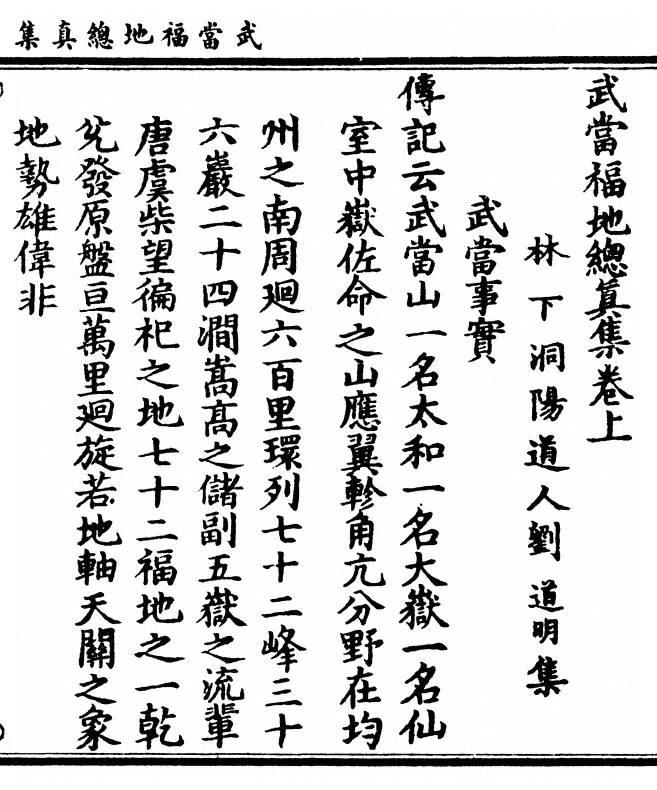 武當福地總真集
武當福地總真集卷上
林下洞陽道人劉道明集
武當事實
傳記云武當山一名太和一名大嶽一名仙
室中嶽佐命之山應翼軫角亢分野在均
州之南周廻六百里環列七十二峰三十
六巖二十四澗嵩高之儲副五嶽之流輩
唐虞柴望徧祀之地七十二福地之一乾
兊發原盤亘萬里廻旋若地軸天關之象
地勢雄偉非